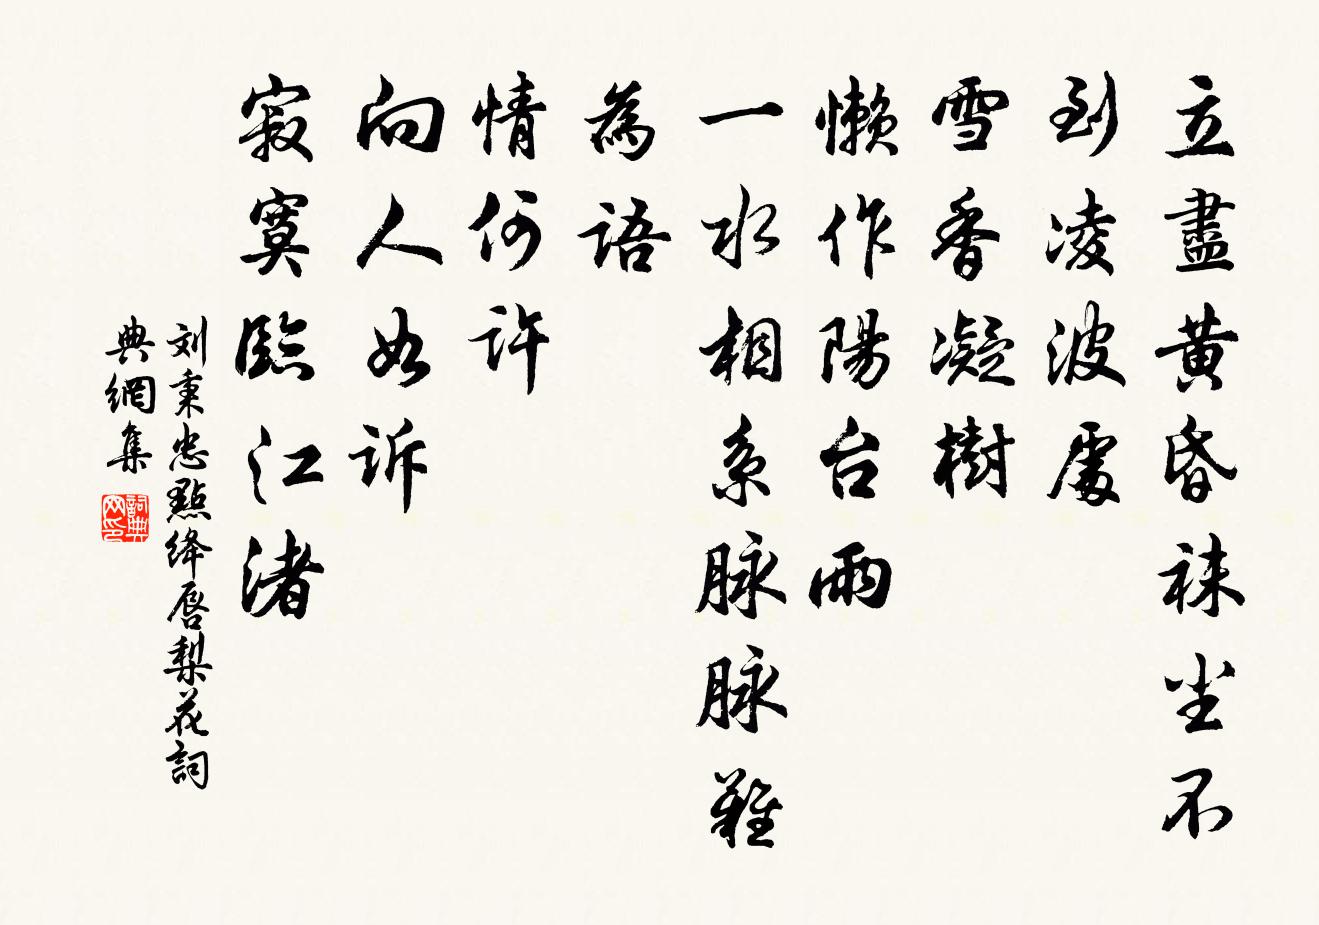 立盡黃昏袜尘不
到凌波處
雪香凝樹
懶作陽台雨
一水相系脉脉難
為語
情何許
向人如訴
寂寞臨江渚
刘秉忠點绛唇梨花詞
典網集
詞典网印